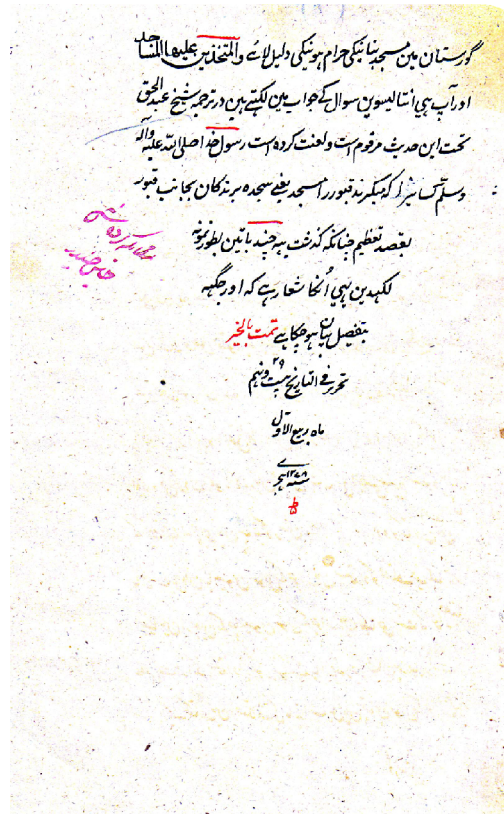 گورستان مین مسجد بنانیکی حرام ہونیکی دلیل لائے والمتخذین علیها المساجد
اور آپ ہی انتالیسوین سوال کے جواب مین لکہتے ہین در ترجمہ شیخ عبد الحق
تحت این حدیث مرقوم است و لعنت کرده است رسول خدا صلی الله علیه وآله
وسلم کسانیرا که میگیرند قبور را مسجد یعنے سجده برندگان بجانب قبور
بقصد تعظیم چنانکه گذشت یہ چند باتین بطور نمونہ
لکہدین یہی انکا شعار ہے کہ اور جگہہ
بتفصیل بیان ہوچکا ہے تمت بالخیر
تحریر فی التاریخ بیست ونہم ۲۹
ماہ ربیع الاول
سنہ ۱۲۷۸ ہجری